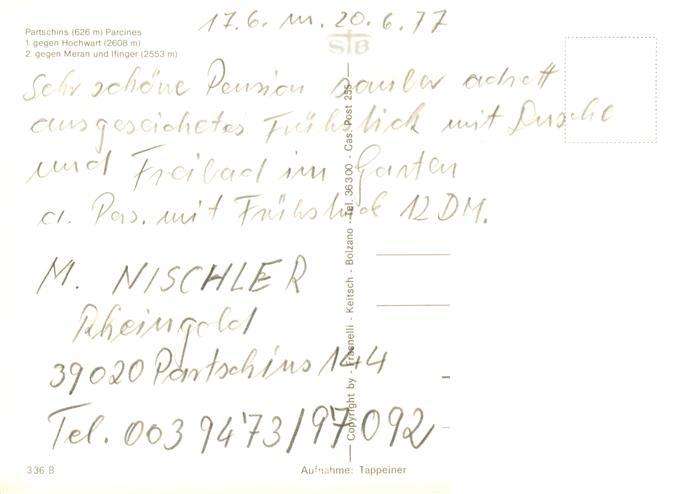 17.6. m. 20.6.77
Partschins (626 m) Parcines
1. gegen Hochwart (2608 m)
2. gegen Meran und Ifinger (2553 m)
STB
Sehr schöne Pension sauber adrett
ausgezeichetes Frühstück mit Dusche
und Freibad im Garten
a. Pas. mit Frühstück 12 DM.
M. NISCHLER
Rheingold
39020 Partschins 144
Tel. 003 9473/97092
Copyright by - Frasnelli - Keitsch - Bolzano - Tel. 36300 - Cas. Post 255
336 B
Aufnahme: Tappeiner